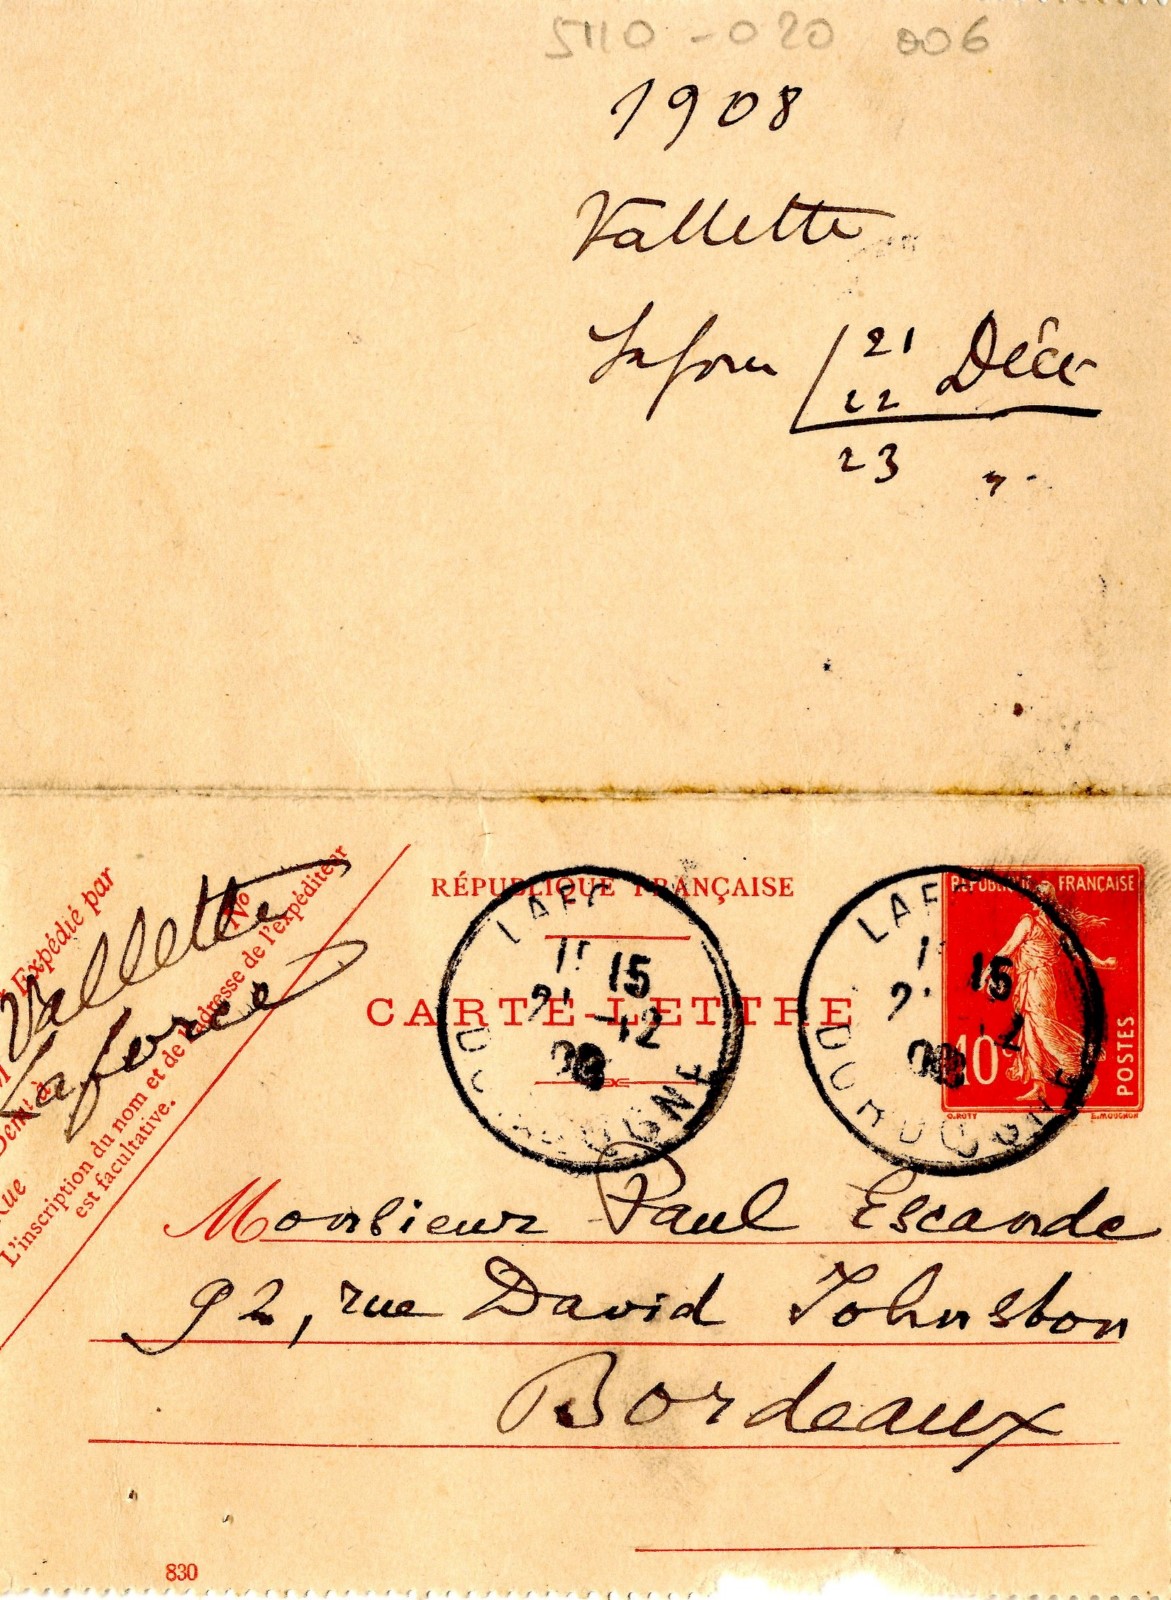 5110-020 006
1908
Vallette
Lafon 21 Déce
22
23 "
Expédié par
Vallette
Laforce
N°
L'inscription du nom et de l'adresse de l'expéditeur
est facultative.
RÉPUBLIQUE FRANÇAISE
CARTE-LETTRE
LAFO
15
21 -12
08
DORDOGNE
LAF
15
2 12
08
DORDOGNE
REPUBLIQUE FRANÇAISE
10c
POSTES
O.ROTY E.MOUCHON
Monsieur Paul Escande
92, rue David Johnston
Bordeaux
830